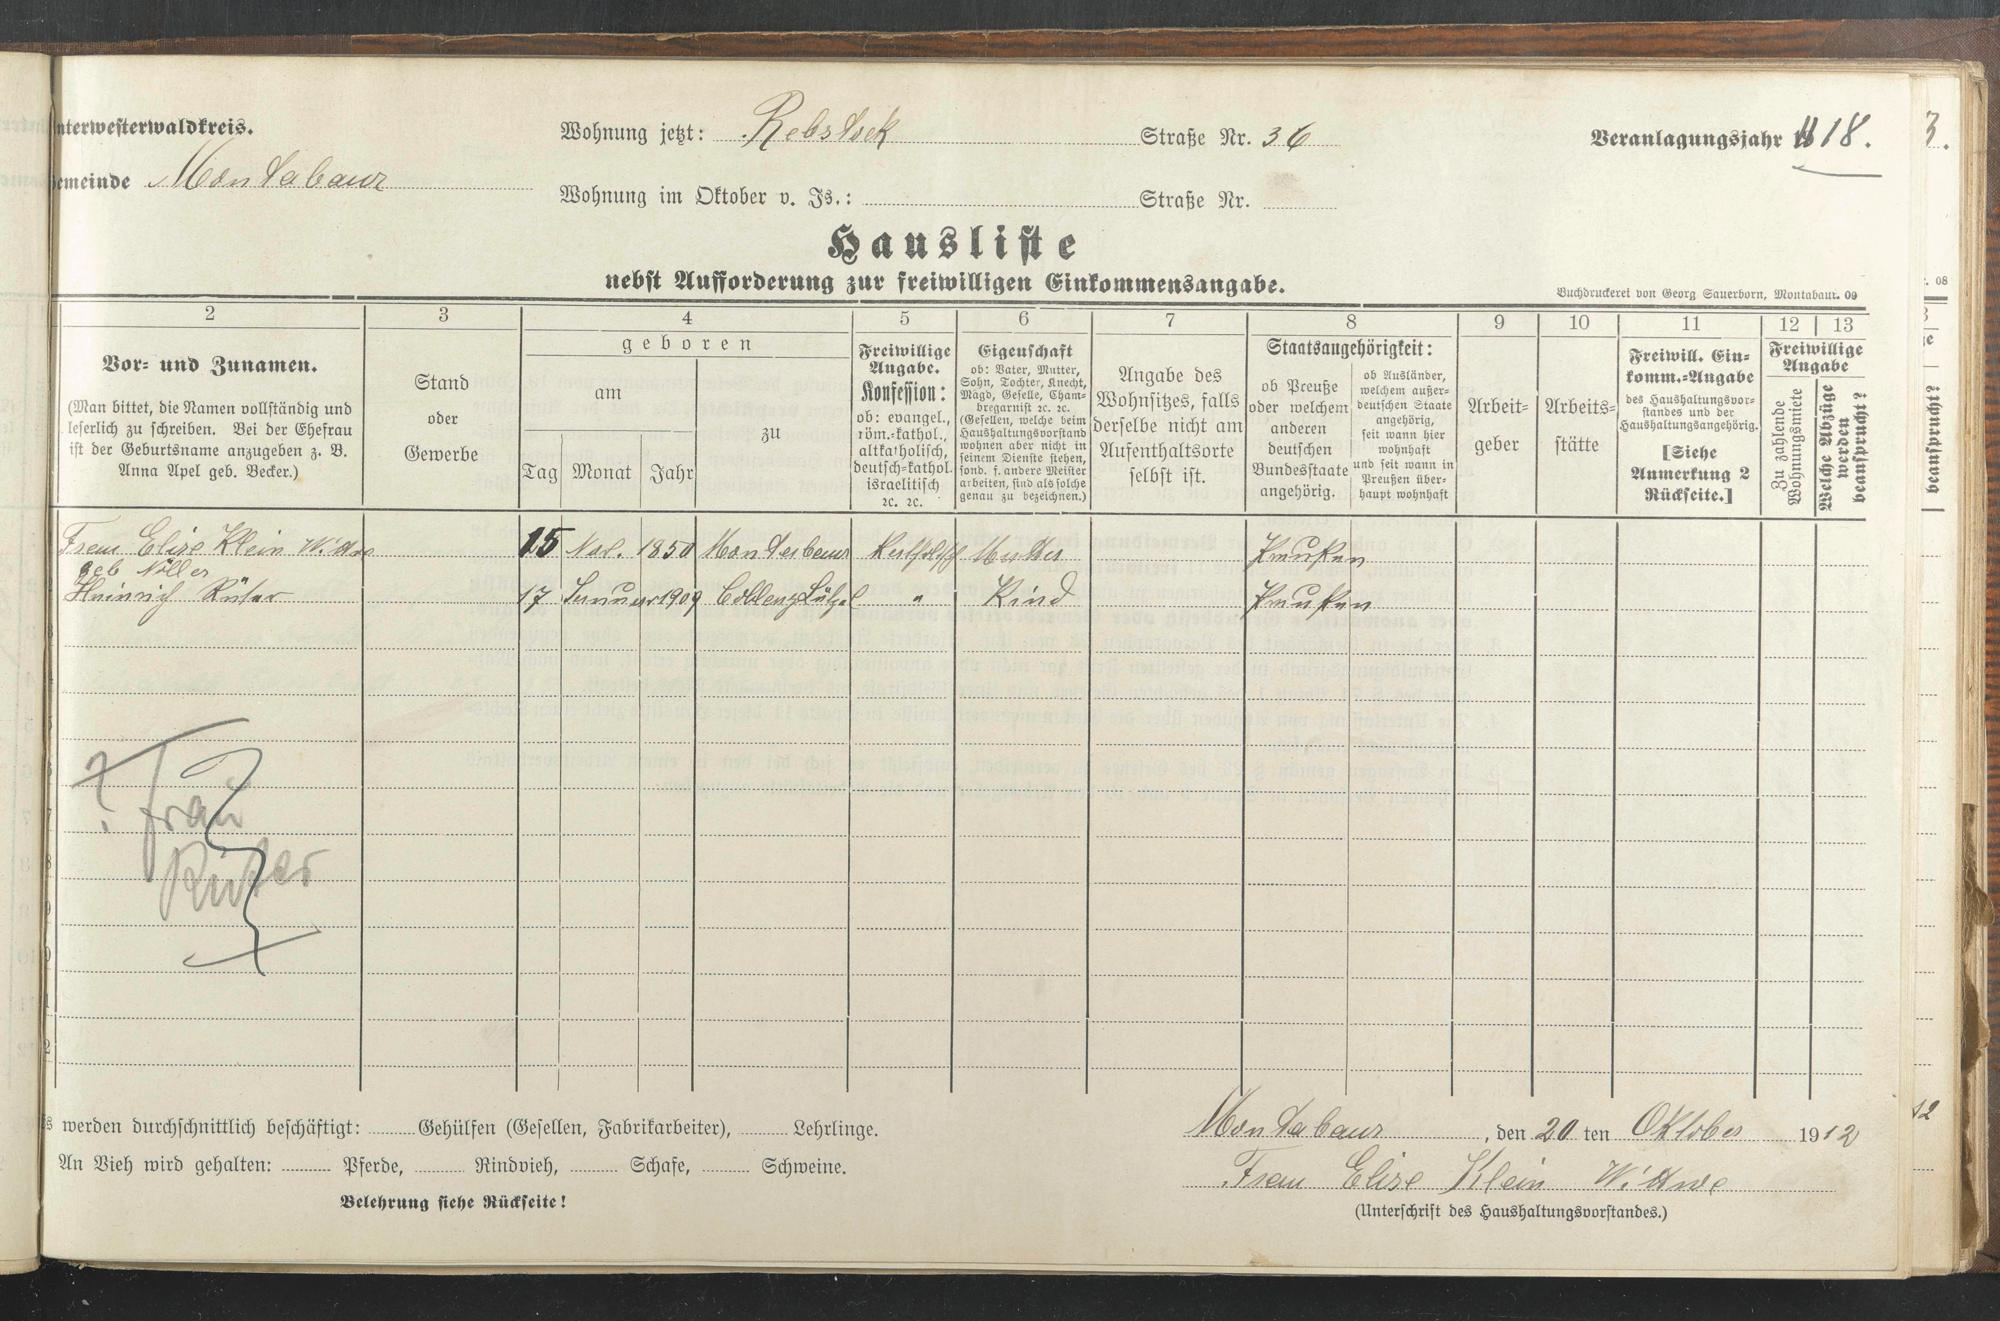 nterwesterwaldkreis.
Wohnung jetzt: Rebstock Straße Nr. 36
Veranlagungsjahr 18.
emeinde Montabaur
Wohnung im Oktober v. Js.: Straße Nr.
Hausliste
nebst Aufforderung zur freiwilligen Einkommensangabe.
Buchdruckerei von Georg Sauerborn, Montabaur. 09
2 3 4 5 6 7 8 9 10 11 12 13
Vor- und Zunamen.
(Man bittet, die Namen vollständig und
leserlich zu schreiben. Bei der Ehefrau
ist der Geburtsname anzugeben z. B.
Anna Apel geb. Becker.)
Stand
oder
Gewerbe
geboren
am
Tag Monat Jahr
zu
Freiwillige
Angabe.
Konfession:
ob: evangel.,
röm.-kathol.,
altkatholisch,
deutsch-kathol.
israelitisch
ꝛc. ꝛc.
Eigenschaft
ob: Vater, Mutter,
Sohn, Tochter, Knecht,
Magd, Geselle, Cham-
bregarnist ꝛc. ꝛc.
(Gesellen, welche beim
Haushaltungsvorstand
wohnen aber nicht in
seinem Dienste stehen,
sond. f. andere Meister
arbeiten, sind als solche
genau zu bezeichnen.)
Angabe des
Wohnsitzes, falls
derselbe nicht am
Aufenthaltsorte
selbst ist.
Staatsangehörigkeit:
ob Preuße
oder welchem
anderen
deutschen
Bundesstaate
angehörig.
ob Ausländer,
welchem außer-
deutschen Staate
angehörig,
seit wann hier
wohnhaft
und seit wann in
Preußen über-
haupt wohnhaft
Arbeit-
geber
Arbeits-
stätte
Freiwill. Ein-
komm.-Angabe
des Haushaltungsvor-
standes und der
Haushaltungsangehörig.
[Siehe
Anmerkung 2
Rückseite.]
Freiwillige
Angabe
Zu zahlende
Wohnungsmiete
Welche Abzüge
werden
beansprucht?
Frau Elise Klein Witwe 15 Nov. 1850 Montabaur Katholisch Mutter Preußen
geb Nöller
Heinrich Rüter 17 Januar 1909 Coblenz Lützel " Kind Preußen
? Frau
Rüter
s werden durchschnittlich beschäftigt: Gehülfen (Gesellen, Fabrikarbeiter), Lehrlinge.
An Vieh wird gehalten: Pferde, Rindvieh, Schafe, Schweine.
Belehrung siehe Rückseite!
Montabaur, den 20 ten Oktober 1912
Frau Elise Klein Wittwe
(Unterschrift des Haushaltungsvorstandes.)
3.
. 08
beansprucht?
12